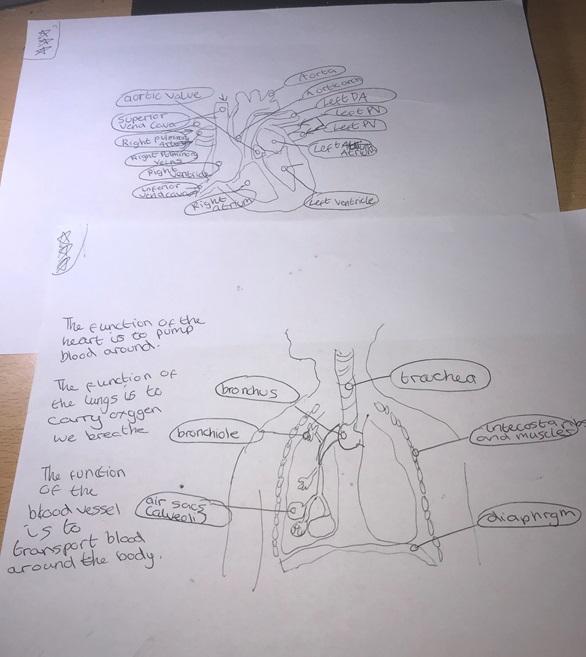 Aorta
aortic valve
Aortic arch
Left PA
Superior
vena cava
Left PV
Left PV
Right pulmonary
Left
Atrium
Right Pulmonary
veins
Right
ventricle
Inferior
vena cava
Right
atrium
Left ventricle
The function of the
heart is to pump
blood around.
The function of
the lungs is to
carry oxygen
we breathe
The function
of the
blood vessel
is to
transport blood
around the body.
trachea
bronchus
bronchiole
intecosta ribs
and muscles
air sacs
(alveoli)
diaphrgm